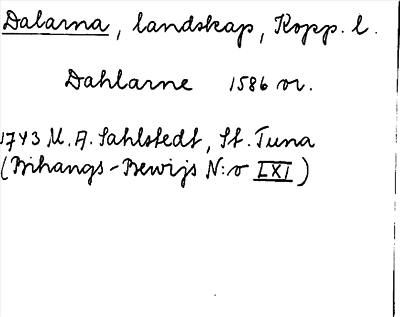 Dalarna, landskap, Kopp. l.
Dahlarne 1586 or.
1743 U. A. Sahlstedt, St. Tuna
(Bihangs-Bewijs N:o LXI)